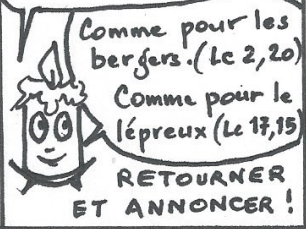 Comme pour les
bergers. (Lc 2, 20)
Comme pour le
lépreux (Lc 17,15)
RETOURNER
ET ANNONCER !